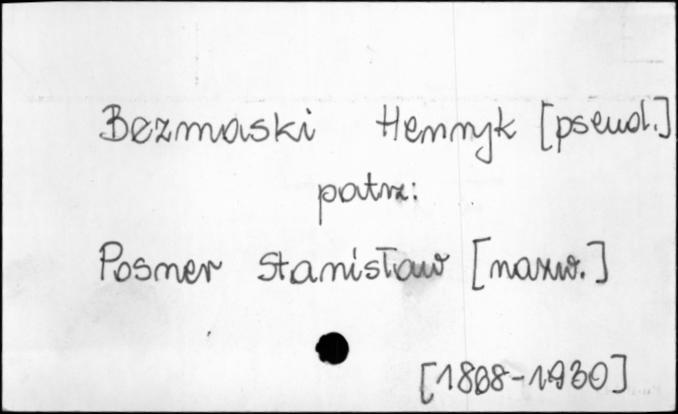 Bezmaski Henryk [pseud.]
patrz:
Posner Stanisław [nazw.]
[1868-1930]